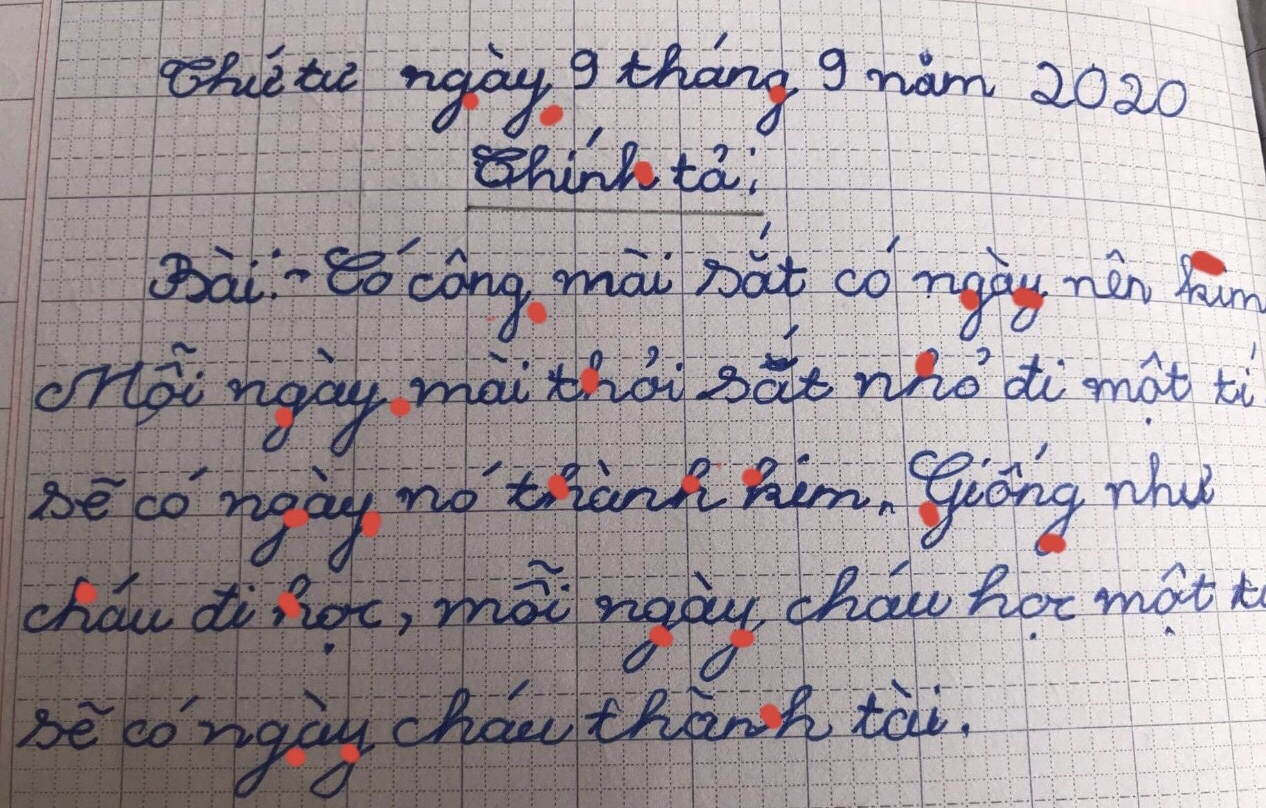 Thứ tư ngày 9 tháng 9 năm 2020
Chính tả:
Bài: Có công mài sắt có ngày nên kim
Mỗi ngày mài thỏi sắt nhỏ đi một tí
sẽ có ngày nó thành kim. Giống như
cháu đi học, mỗi ngày cháu học một tí
sẽ có ngày cháu thành tài.